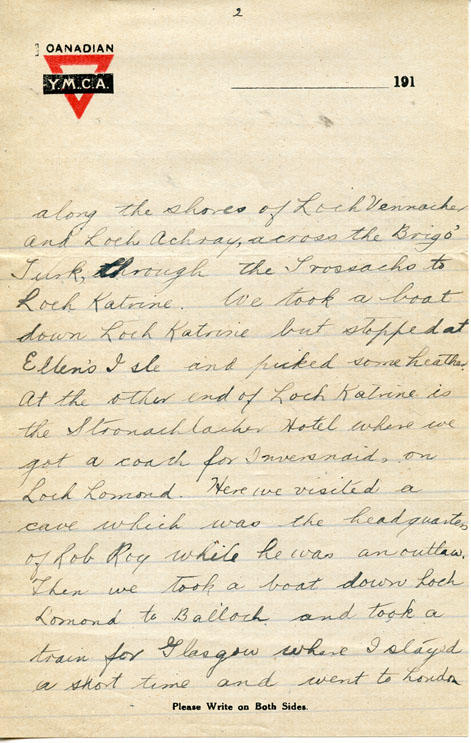 2
CANADIAN
Y.M.C.A.
191
along the shores of Loch Vennacher
and Loch Achray, across the Brig o'
Turk, through the Trossachs to
Loch Katrine. We took a boat
down Loch Katrine but stopped at
Ellen's Isle and picked some heather.
At the other end of Loch Katrine is
the Stronachlacher Hotel where we
got a coach for Inversnaid, on
Loch Lomond. Here we visited a
cave which was the headquarters
of Rob Roy while he was an outlaw.
Then we took a boat down Loch
Lomond to Balloch and took a
train for Glasgow where I stayed
a short time and went to London
Please Write on Both Sides.